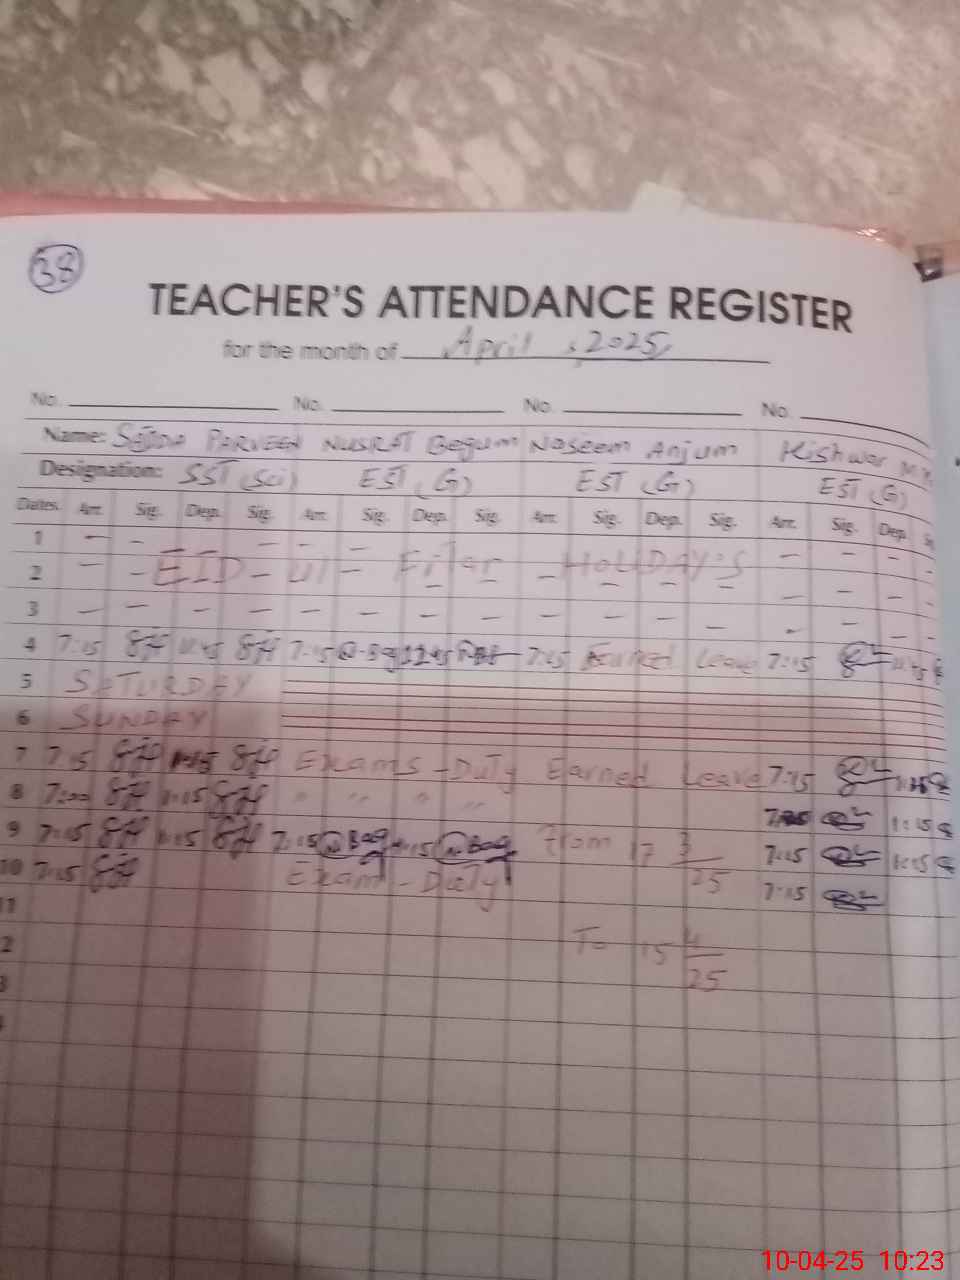 38
TEACHER'S ATTENDANCE REGISTER
for the month of April, 2025,
No. No. No. No.
Name: SAJJDA PARVEEN NUSRAT Begum Naseem Anjum Kishwar
Designation: SST (Sci) EST (G) EST (G) EST (G)
Dates. Arr. Sig. Dep. Sig. Arr. Sig. Dep. Sig. Arr. Sig. Dep. Sig. Arr. Sig. Dep.
1 – – – – – – –
2 – – EID – Ul – Fitar – HOLIDAY'S – – –
3 – – – – – – – – – – – – – – –
4 7:15 11:45 7:15 12:45 7:15 Earned Leave 7:15 11:45
5 SATURDAY
6 SUNDAY
7 7:15 Exams – Duty Earned Leave 7:15
8 7:00 1:15 " " " " 1:15
9 7:15 1:15 7:15 1:15 From 17 3/25 7:15 1:15
10 7:15 Exam – Duty 7:15
11
2 To 15 4/25
3
10-04-25 10:23